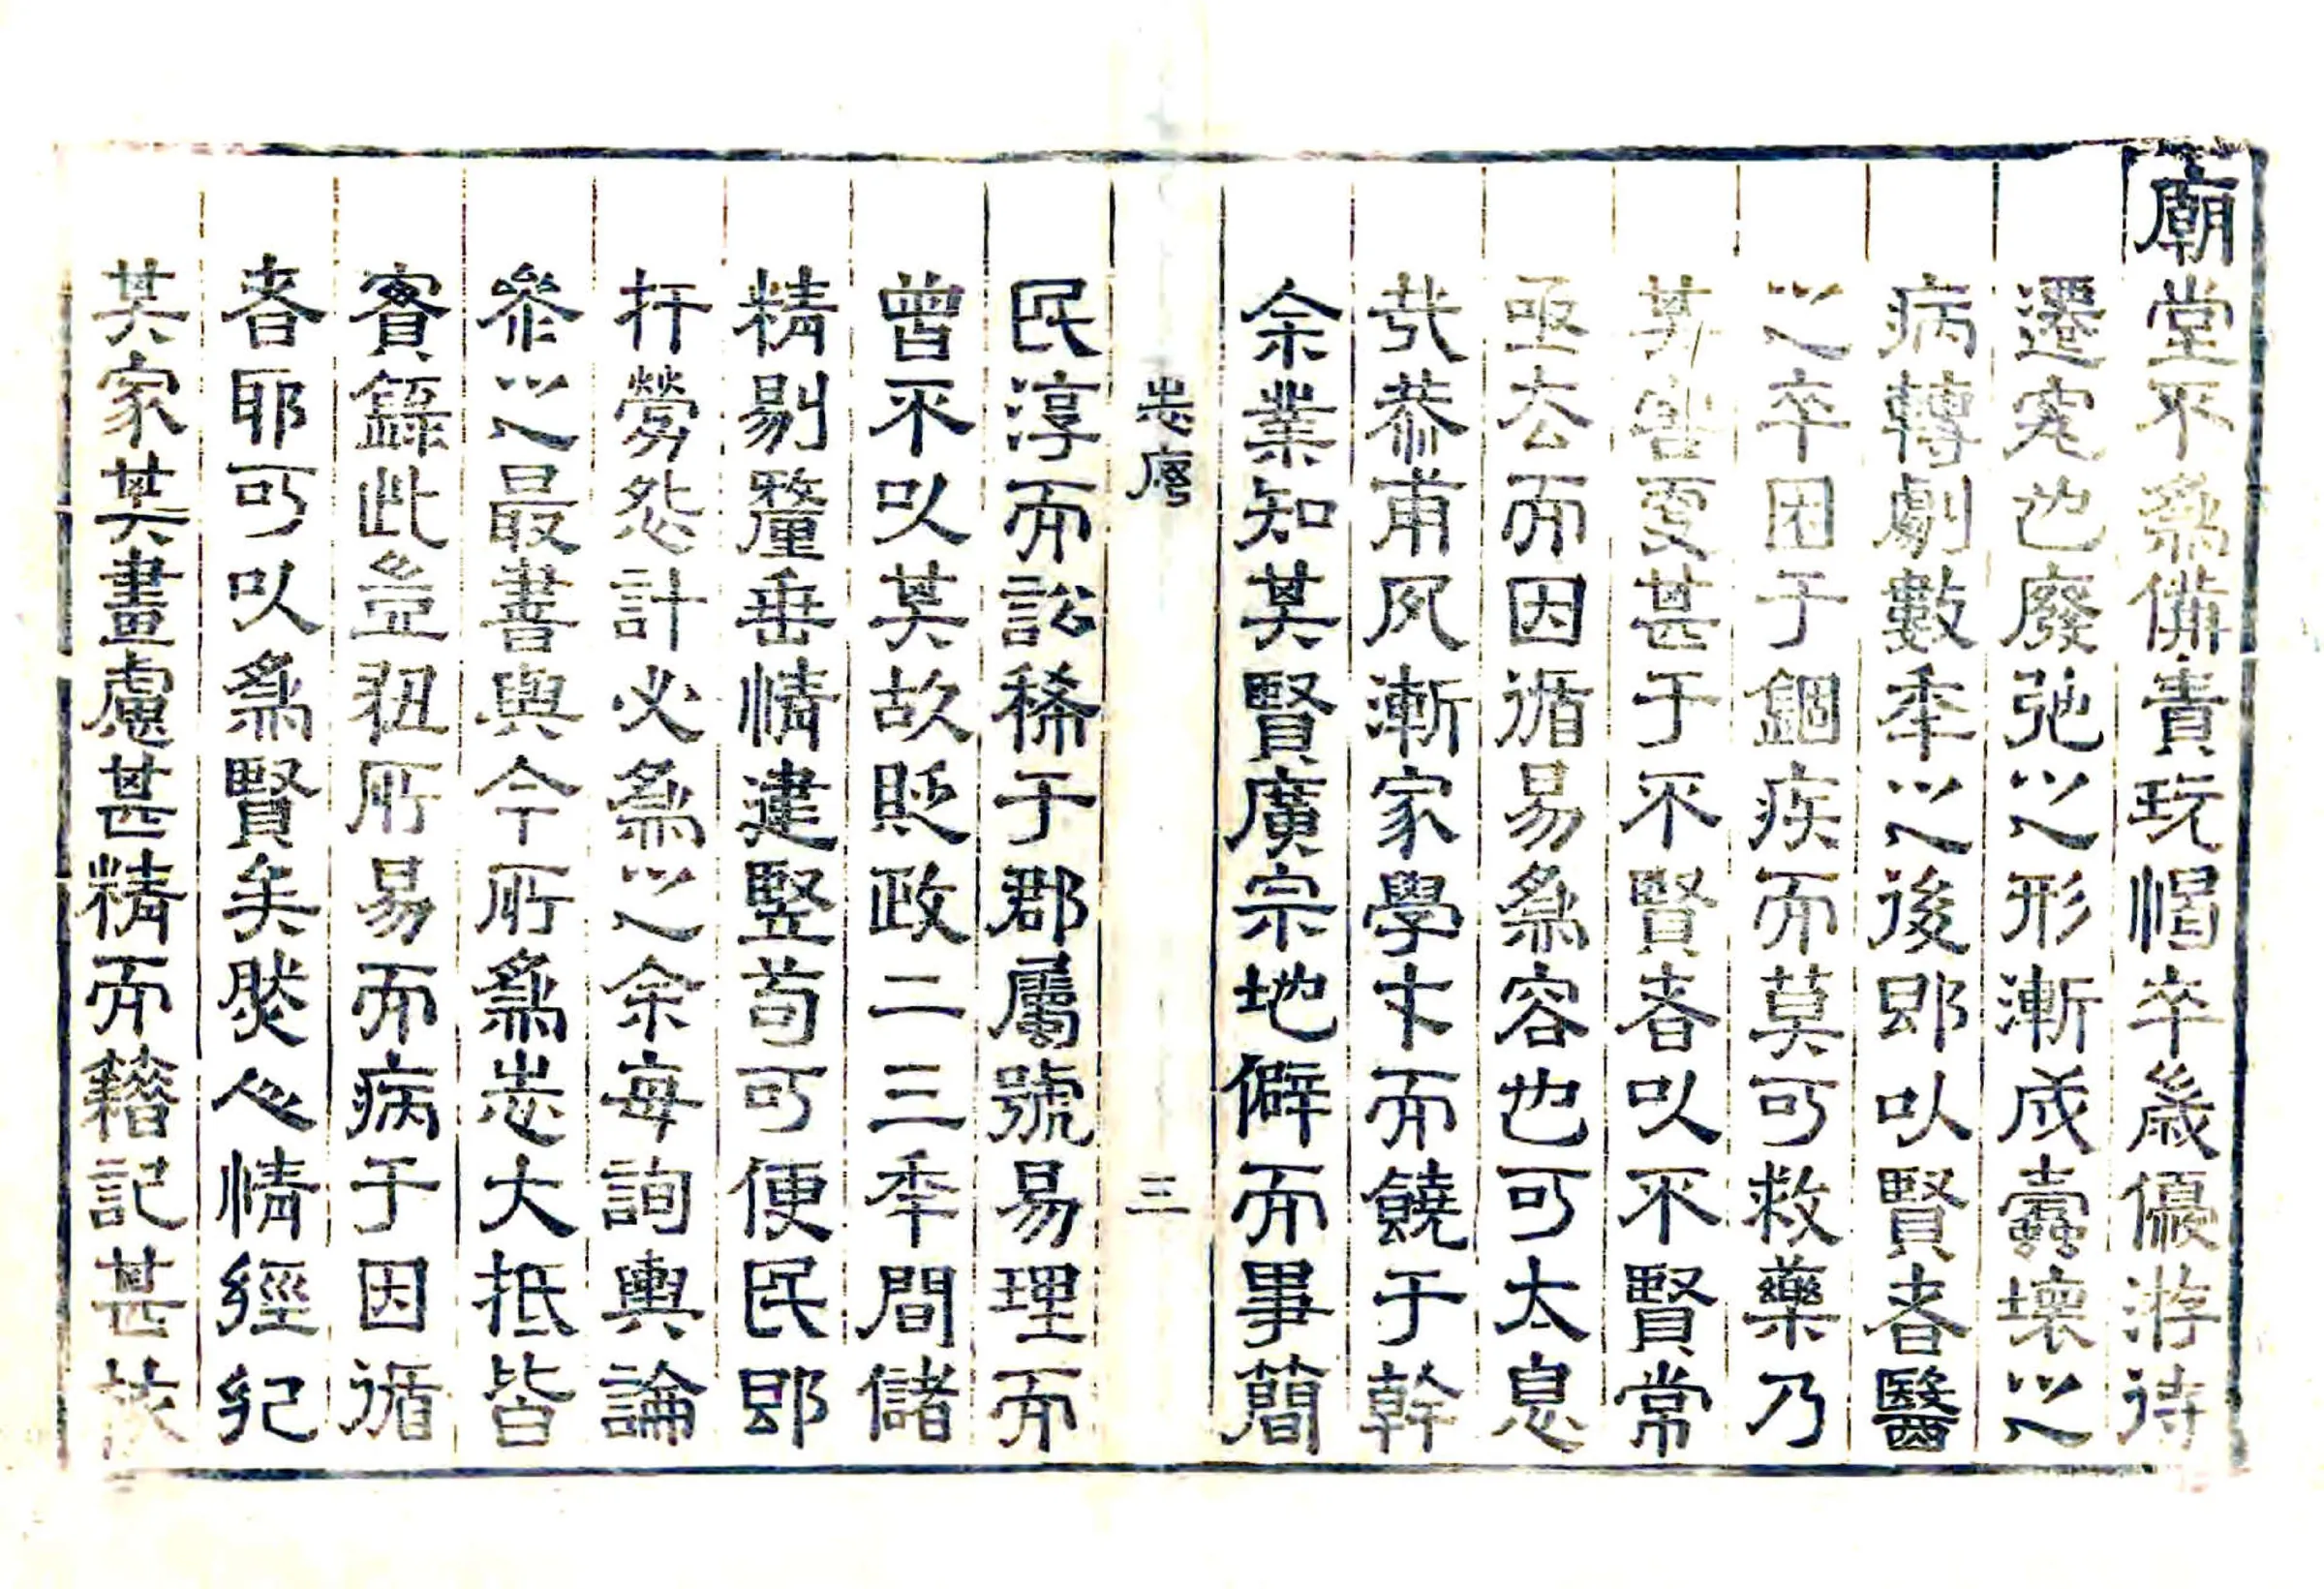 廟堂不為備責玩愒卒歲優游待
遷究也廢弛之形漸成蠹壞之
病轉劇數年之後即以賢者醫
之卒困于錮疾而莫可救藥乃
其害更甚于不賢者以不賢常
亟去而因循易為容也可太息
哉恭甫夙漸家學才而饒于幹
余業知其賢廣宗地僻而事簡
志序
三
民淳而訟稀于郡屬號易理而
曾不以其故貶政二三年間儲
精剔釐垂情建竪苟可便民即
扞勞怨計必為之余每詢輿論
參之最書與今所為志大抵皆
實錄此豈狃所易而病于因循
者耶可以為賢矣然人情經紀
其家其畫慮甚精而籍記甚